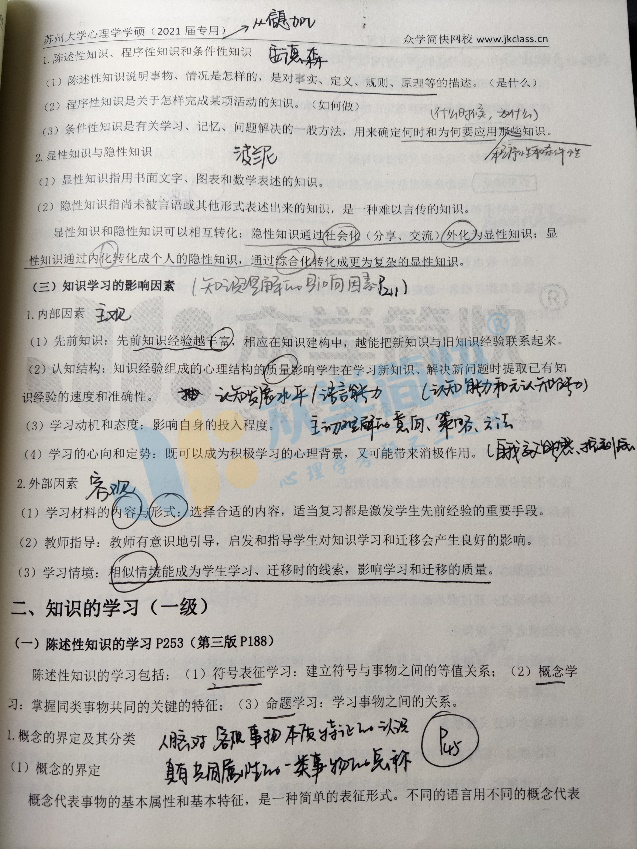 苏州大学心理学学硕（2021 届专用）
众学简快网校 www.jkclass.cn
1.陈述性知识、程序性知识和条件性知识 安德森
（1）陈述性知识说明事物、情况是怎样的，是对事实、定义、规则、原理等的描述。（是什么）
（2）程序性知识是关于怎样完成某项活动的知识。（如何做）
（什么时候，为什么）
（3）条件性知识是有关学习、记忆、问题解决的一般方法，用来确定何时和为何要应用那些知识。
2.显性知识与隐性知识 波兰尼
（1）显性知识指用书面文字、图表和数学表述的知识。
（2）隐性知识指尚未被言语或其他形式表述出来的知识，是一种难以言传的知识。
显性知识和隐性知识可以相互转化：隐性知识通过社会化（分享、交流）外化为显性知识；显
性知识通过内化转化成个人的隐性知识，通过综合化转化成更为复杂的显性知识。
（三）知识学习的影响因素 （知识理解的影响因素P211）
1.内部因素 主观
（1）先前知识：先前知识经验越丰富，相应在知识建构中，越能把新知识与旧知识经验联系起来。
（2）认知结构：知识经验组成的心理结构的质量影响学生在学习新知识、解决新问题时提取已有知
识经验的速度和准确性。 认知发展水平/语言能力 （认知能力和元认知能力）
（3）学习动机和态度：影响自身的投入程度。 主动理解的意向、策略、方法
（4）学习的心向和定势：既可以成为积极学习的心理背景，又可能带来消极作用。
2.外部因素 客观
（1）学习材料的内容与形式：选择合适的内容，适当复习都是激发学生先前经验的重要手段。
（2）教师指导：教师有意识地引导，启发和指导学生对知识学习和迁移会产生良好的影响。
（3）学习情境：相似情境能成为学生学习、迁移时的线索，影响学习和迁移的质量。
二、知识的学习（一级）
（一）陈述性知识的学习 P253（第三版 P188）
陈述性知识的学习包括：（1）符号表征学习：建立符号与事物之间的等值关系；（2）概念学
习：掌握同类事物共同的关键的特征；（3）命题学习：学习事物之间的关系。
1.概念的界定及其分类 人脑对客观事物本质特征的认识
（1）概念的界定 具有共同属性的一类事物的总称
概念代表事物的基本属性和基本特征，是一种简单的表征形式。不同的语言用不同的概念代表
众学简快®
心理学